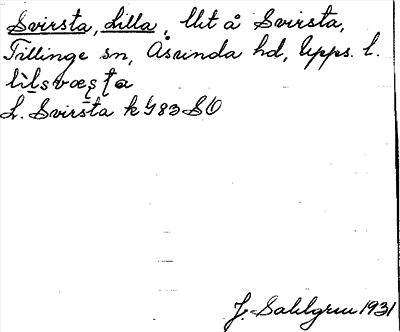 Svirsta, Lilla, llt å Svirsta,
Tillinge sn, Åsunda hd, Upps. l.
L. Svirsta k 483 SO
J. Sahlgren 1931